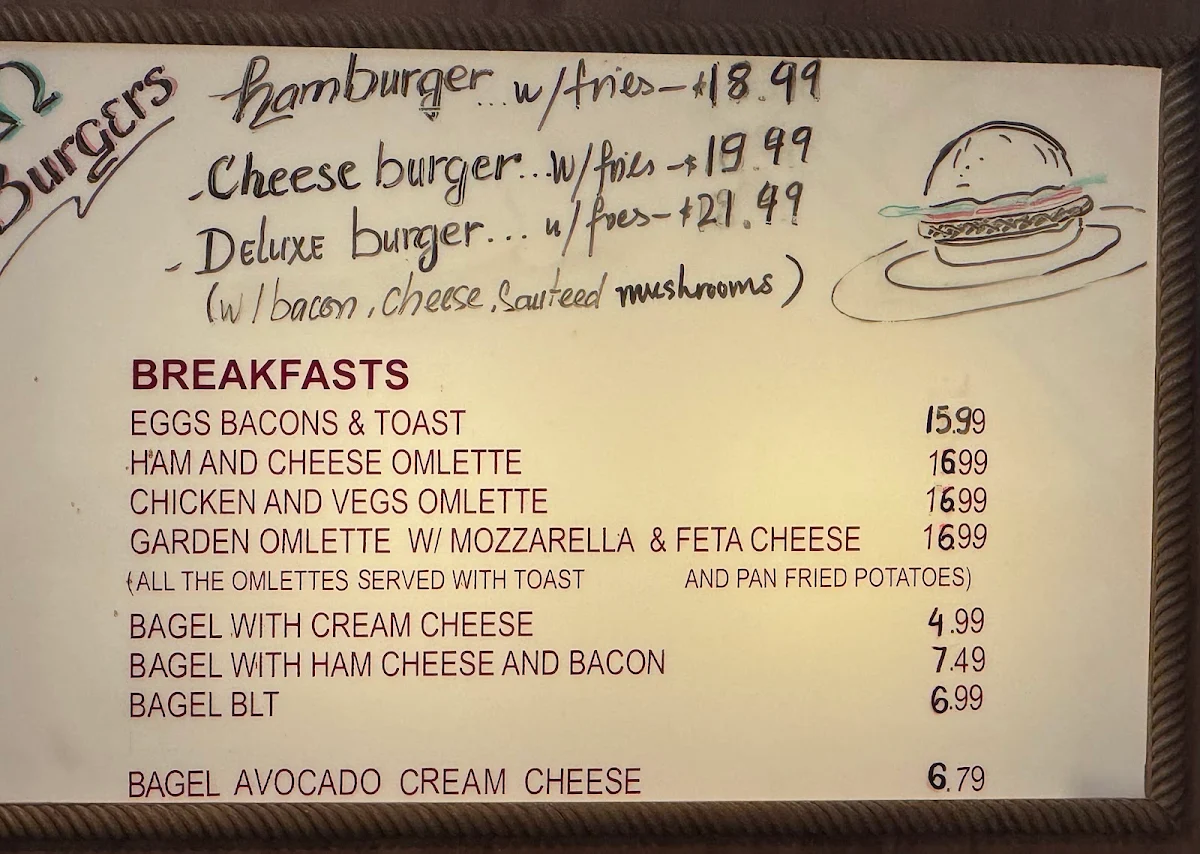 Burgers
hamburger...w/fries-$18.99
-Cheese burger...w/fries-$19.99
- Deluxe burger... w/fries-$21.99
(w/bacon, cheese, Sauteed mushrooms)
BREAKFASTS
EGGS BACONS & TOAST 15.99
HAM AND CHEESE OMLETTE 16.99
CHICKEN AND VEGS OMLETTE 16.99
GARDEN OMLETTE W/ MOZZARELLA & FETA CHEESE 16.99
(ALL THE OMLETTES SERVED WITH TOAST AND PAN FRIED POTATOES)
BAGEL WITH CREAM CHEESE 4.99
BAGEL WITH HAM CHEESE AND BACON 7.49
BAGEL BLT 6.99
BAGEL AVOCADO CREAM CHEESE 6.79